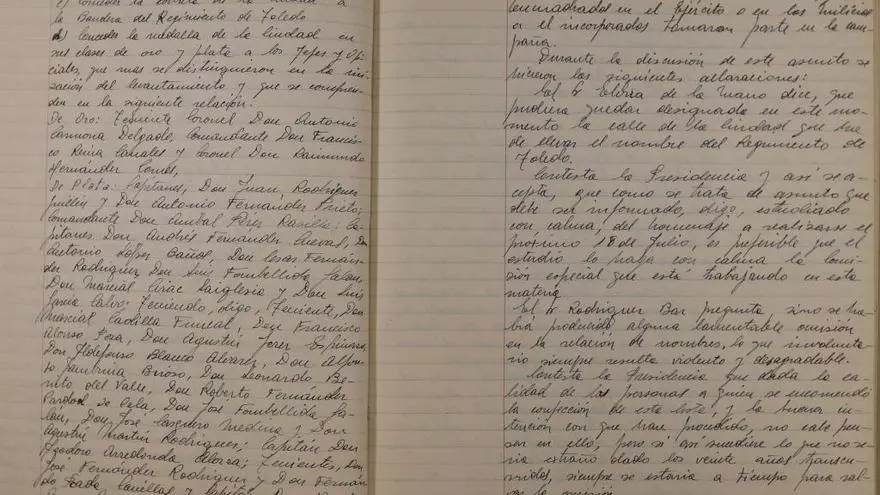 c) Conceder la Corbata de la Ciudad a
la Bandera del Regimiento de Toledo
d) Conceder la medalla de la Ciudad en
sus clases de oro y plata a los Jefes y Ofi-
ciales, que mas se distinguieron en la ini-
ciación del levantamiento y que se compren-
den en la siguiente relación.
De Oro: Teniente Coronel Don Antonio
Carmona Delgado, Comandante Don Francis-
co Riera Canales y Coronel Don Raimundo
Hernández Comes,
De Plata: Capitanes, Don Juan Rodríguez
y Don Antonio Fernández Prieto;
Comandante Don Anibal Pérez Ca-
pitanes Don Andrés Fernández Cueval, Don
Antonio López Bañol, Don Cesar Fernán-
der Rodríguez, Don Luis Fombellida Galan,
Don Marcial Cirac Laiglesia y Don Luis
García Calvo; Teniendo, digo, Teniente, Don
Marcial Cadilla Funcal, Don Francisco
Alonso Poza, Don Agustín Jorer Espinosa,
Don Ildefonso Blanco Alvarez, Don Alfon-
so Zambrina Brioso, Don Leonardo Be-
nito del Valle, Don Roberto Fernández
Pardo de Cela, Don José Fombellida Ga-
lán, Don José Casquero Medina y Don
Agustín Martín Rodrigues; Capitán Don
Teodoro Arredonda Elorza; Tenientes, Don
José Fernández Rodríguez y Don Fernan-
do Canillas y Capitán Don
encuadrados en el Ejército o en las Milicias
a el incorporados tomaron parte en la cam-
paña.
Durante la discusión de este asunto se
hicieron las siguientes aclaraciones:
El Sr Eleiza de la Mano dice, que
pudiera quedar designada en este mo-
mento la calle de la Ciudad que ha
de llevar el nombre del Regimiento de
Toledo.
Contesta la Presidencia y así se a-
cepta, que como se trata de asunto que
debe ser informado, digo, estudiado
con calma, del homenaje a realizarse el
próximo 18 de Julio, es preferible que el
estudio lo haga con calma la Comi-
sión especial que está trabajando en esta
materia.
El Sr Rodríguez Bar pregunta, si no se ha-
brá producido alguna lamentable omisión
en la relación de nombres, lo que involunta-
rio siempre resulta violento y desagradable.
Contesta la Presidencia que dada la ca-
lidad de las personas a quien se encomendó
la confección de esta lista, y la buena in-
tención con que han procedido, no cabe pen-
sar en ello, pero si así sucediere lo que no se-
ria extraño dado los veinte años transcu-
rridos, siempre se estaria a tiempo para sal-
var la omisión